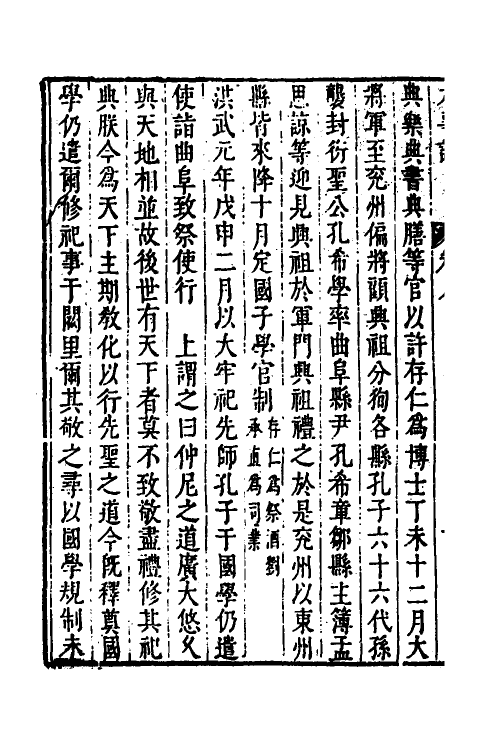 典樂典書典膳等官以許存仁爲博士丁未十二月大
將軍至兖州偏將顧興祖分狥各縣孔子六十六代孫
襲封衍聖公孔希學率曲阜縣尹孔希章鄒縣主簿孟
思諒等迎見興祖於軍門興祖禮之於是兖州以東州
縣皆來降十月定國子學官制存仁爲祭酒劉
承直爲司業
洪武元年戊申二月以大牢祀先師孔子于國學仍遣
使詣曲阜致祭使行 上謂之曰仲尼之道廣大悠久
與天地相並故後世有天下者莫不致敬盡禮修其祀
典朕今爲天下主期教化以行先聖之道今旣釋奠國
學仍遣爾修祀事于闕里爾其敬之尋以國學規制未